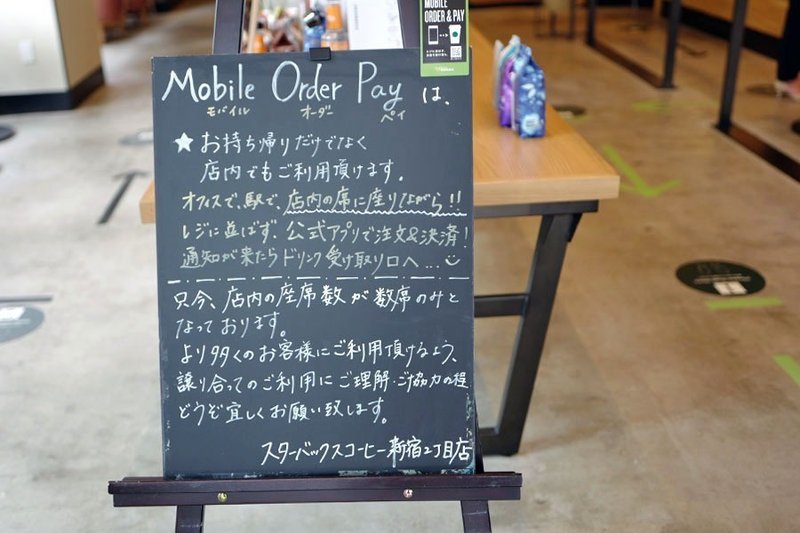 MOBILE
ORDER & PAY
Mobile Order Pay は、
モバイル オーダー ペイ
★お持ち帰りだけでなく
店内でもご利用頂けます。
オフィスで、駅で、店内の席に座りながら!!
レジに並ばず、公式アプリで注文&決済!
通知が来たらドリンク受け取り口へ...
只今、店内の座席数が数席のみと
なっております。
より多くのお客様にご利用頂けるよう、
譲り合ってのご利用にご理解・ご協力の程
どうぞ宜しくお願い致します。
スターバックスコーヒー新宿2丁目店